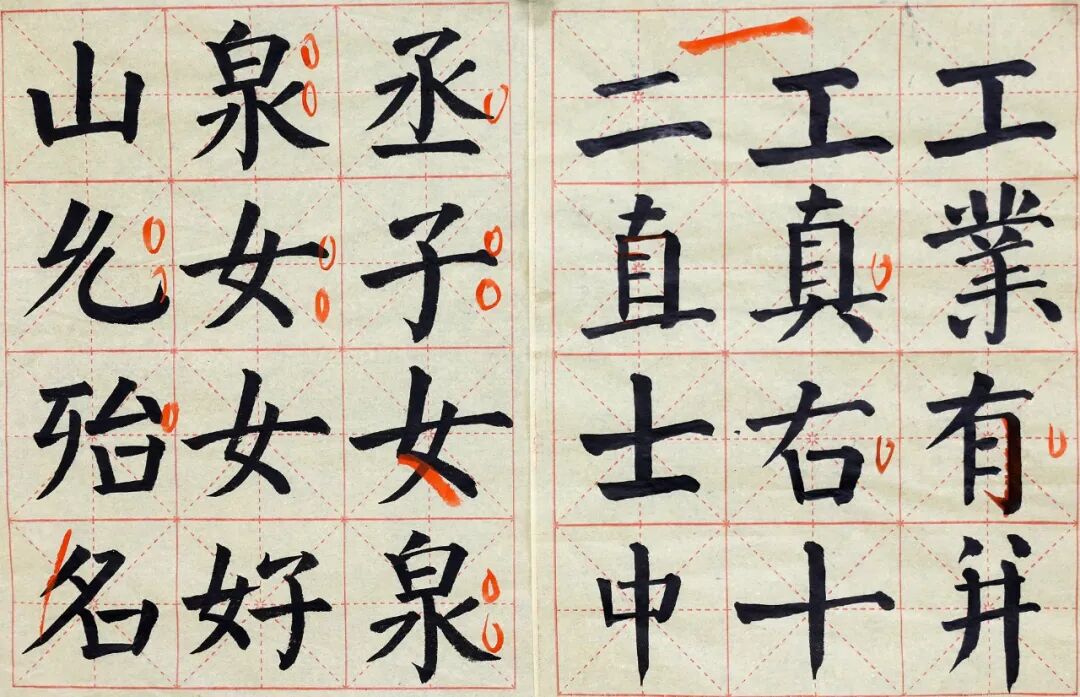 山泉丞
女子
殆女女
名好泉
二工工
直真業
士右有
中十并